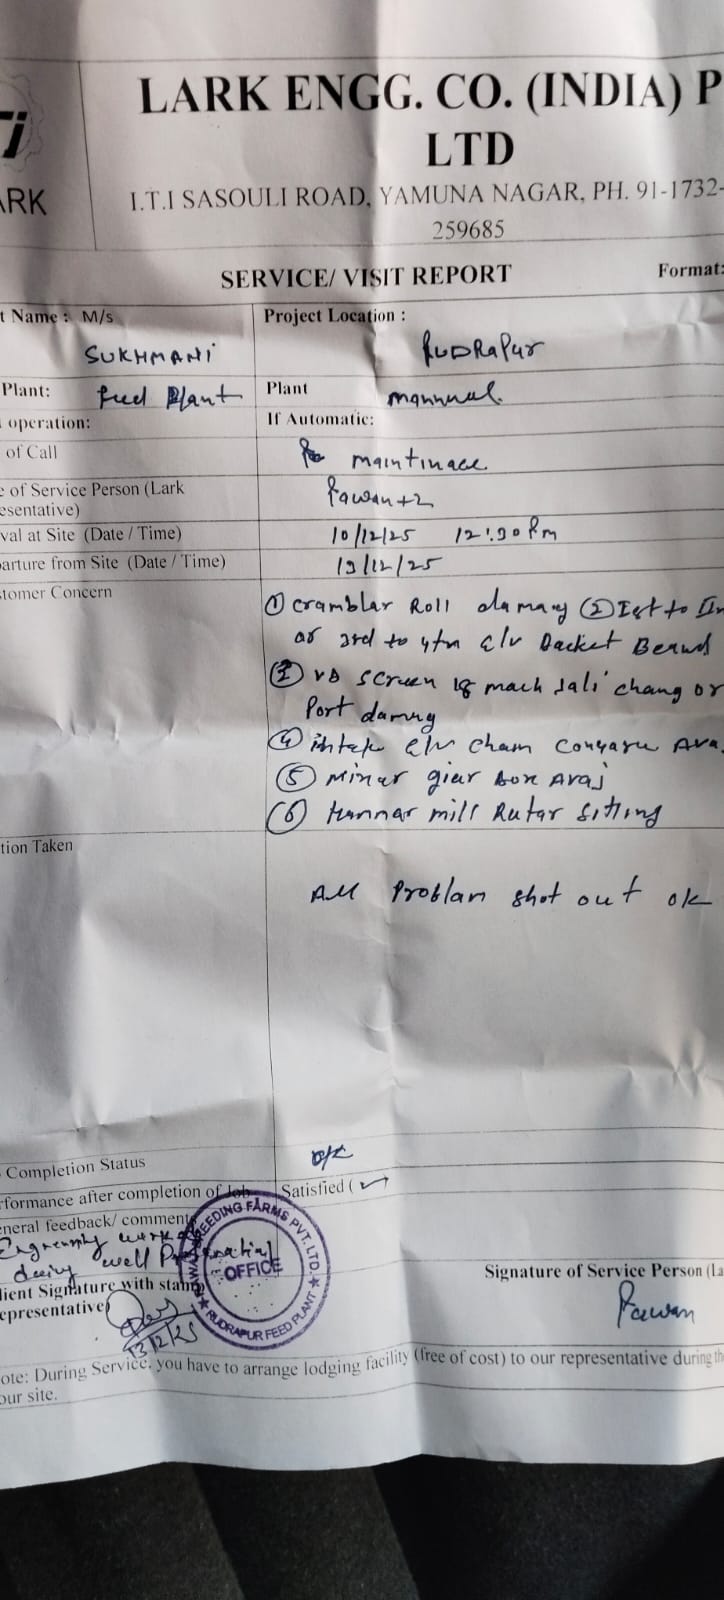 LARK ENGG. CO. (INDIA) P
LTD
ARK
I.T.I SASOULI ROAD, YAMUNA NAGAR, PH. 91-1732-
259685
SERVICE/ VISIT REPORT
Format:
t Name : M/s
SUKHMANI
Project Location :
RUDRAPUR
Plant:
Feed Plant
Plant
mannual
operation:
If Automatic:
of Call
maintinace
e of Service Person (Lark
esentative)
Pawan+2
val at Site (Date / Time)
10/12/25 12:30 Pm
arture from Site (Date / Time)
13/12/25
tomer Concern
① Cramblar Roll damag ②
or 3rd to 4th
③ screen 18 mach Jali chang or
Port damag
④ intek Elv Cham
⑤ Mixar giar Box Avaj
⑥ Hammar mill Rutar Sitting
tion Taken
All Problam shot out ok
Completion Status
o/k
formance after completion of Job
Satisfied (✓
neral feedback/ comment
work
well
lient Signature with stamp
epresentative)
13/12/25
BREEDING FARMS PVT. LTD.
OFFICE
★ RUDRAPUR FEED PLANT ★
Signature of Service Person (La
Pawan
ote: During Service, you have to arrange lodging facility (free of cost) to our representative during th
our site.